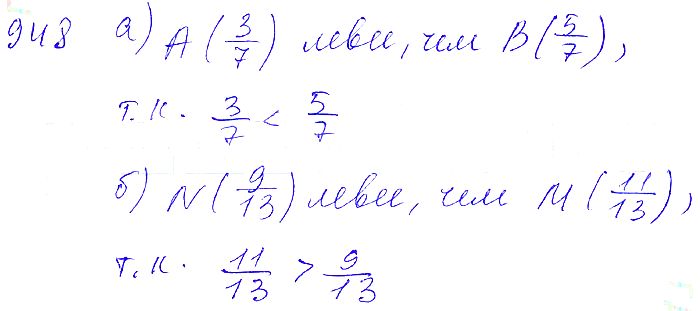 948 а) A(3/7) левее, чем B(5/7),
т.к. 3/7 < 5/7
б) N(9/13) левее, чем M(11/13),
т.к. 11/13 > 9/13